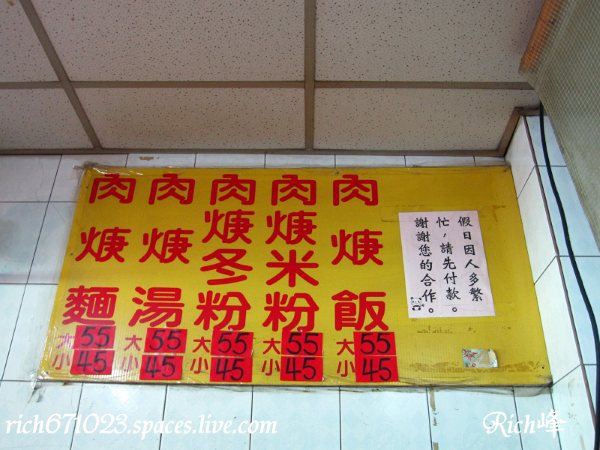 肉焿麵
大 55
小 45
肉焿湯
大 55
小 45
肉焿冬粉
大 55
小 45
肉焿米粉
大 55
小 45
肉焿飯
大 55
小 45
假日因人多繁
忙，請先付款。
謝謝您的合作。
rich671023.spaces.live.com
Rich峰
Rich峰